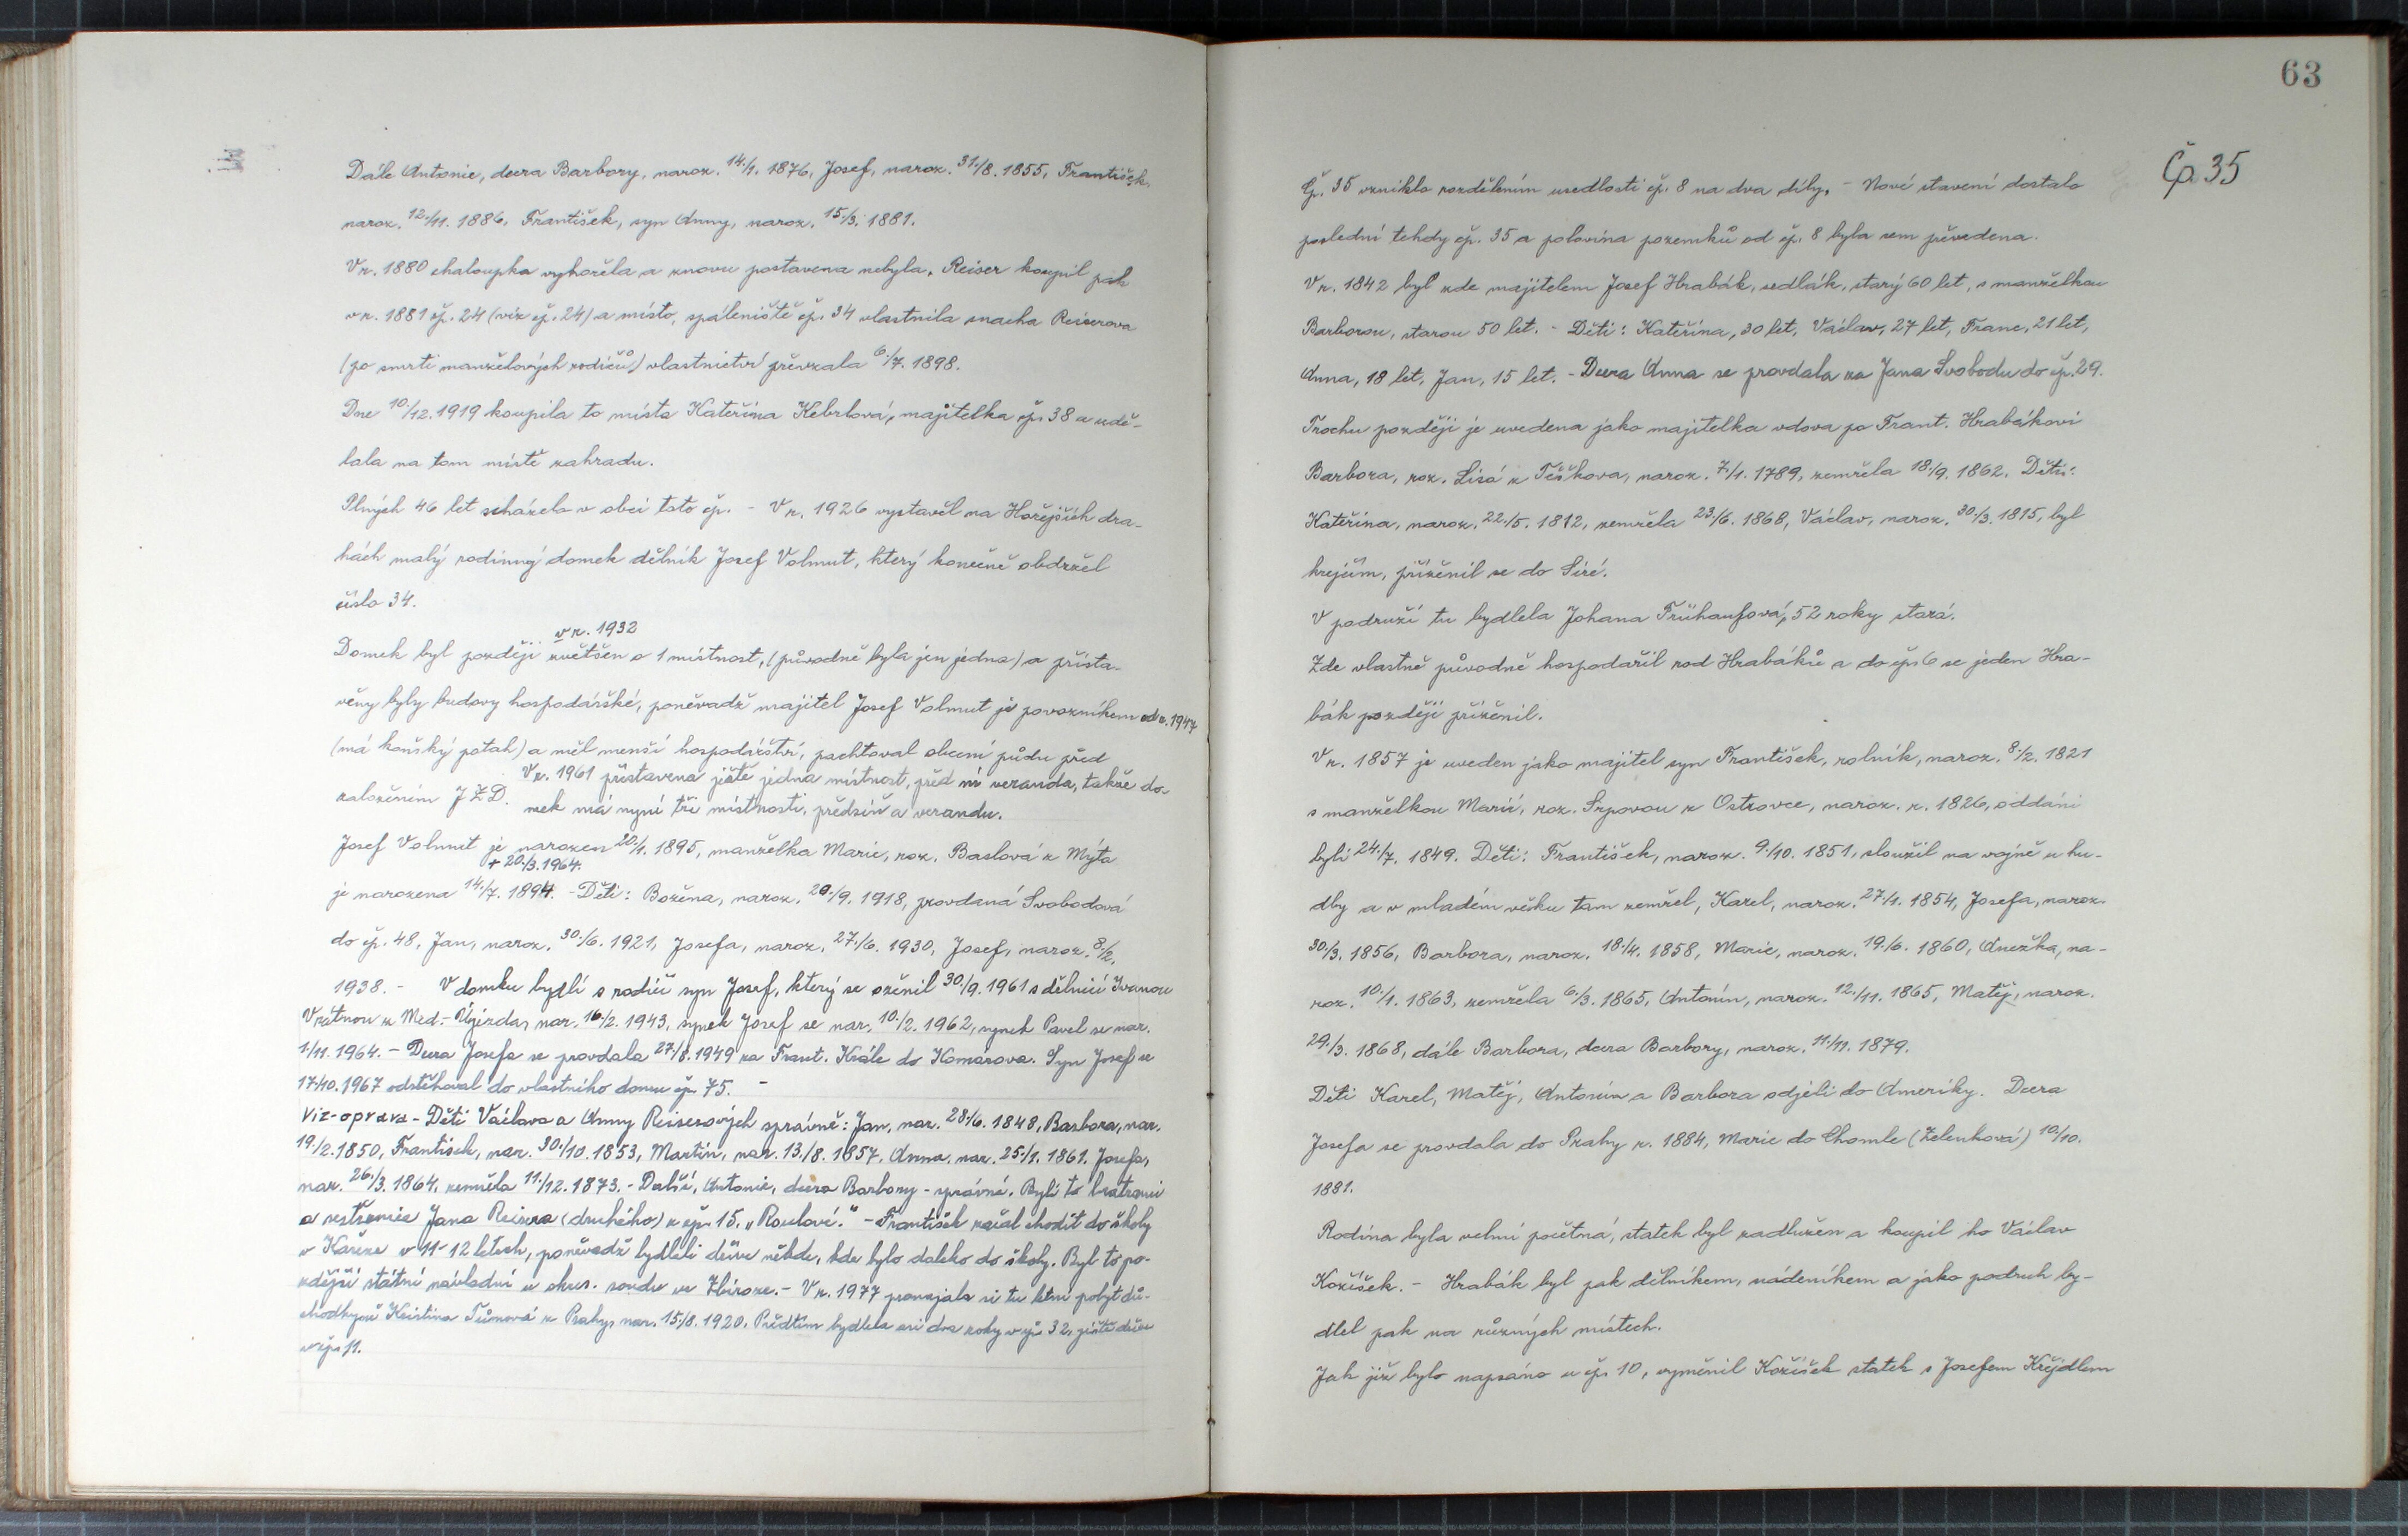 Dále Antonie, dcera Barbory, naroz. 14./1. 1876, Josef, naroz. 31./8. 1855, František,
naroz. 12./11. 1886, František, syn Anny, naroz. 15./3. 1881.
V r. 1880 chaloupka vyhořela a znovu postavena nebyla. Reiser koupil pak
v r. 1881 čp. 24 (viz čp. 24) a místo, spáleniště čp. 34 vlastnila snacha Reiserova
(po smrti manželových rodičů) vlastnictví převzala 6./7. 1898.
Dne 10./12. 1919 koupila to místo Kateřina Kebrlová, majitelka čp. 38 a udě-
lala na tom místě zahradu.
Plných 46 let scházelo v obci toto čp. - V r. 1926 vystavěl na Hořejších dra-
hách malý rodinný domek dělník Josef Volmut, který konečně obdržel
číslo 34.
v r. 1932
Domek byl později zvětšen o 1 místnost, (původně byla jen jedna) a přista-
věny byly budovy hospodářské, poněvadž majitel Josef Volmut je povozníkem od r. 1947
(má koňský potah) a měl menší hospodářství, pachtoval obecní půdu před
založením JZD. V r. 1961 přistavena ještě jedna místnost, před ní veranda, takže do-
mek má nyní tři místnosti, předsíň a verandu.
Josef Volmut je narozen 20./1. 1895, manželka Marie, roz. Baslová z Mýta
+ 20./3. 1964.
je narozena 14./7. 1894. - Děti: Božena, naroz. 20./9. 1918, provdaná Svobodová
do čp. 48, Jan, naroz. 30./6. 1921, Josefa, naroz. 27./6. 1930, Josef, naroz. 8./2.
1938. - V domku bydlí s rodiči syn Josef, který se oženil 30./9. 1961 s dělnicí Ivanou
Vrátnou z Med. Újezda, nar. 16./2. 1943, synek Josef se nar. 10./2. 1962, synek Pavel se nar.
1./11. 1964. - Dcera Josefa se provdala 27./8. 1949 za Frant. Krále do Komárova. Syn Josef se
17./10. 1967 odstěhoval do vlastního domu čp. 75. -
Viz-oprava - Děti Václava a Anny Reiserových správně: Jan, nar. 28./6. 1848, Barbora, nar.
19./2. 1850, František, nar. 30./10. 1853, Martin, nar. 13./8. 1857, Anna, nar. 25./1. 1861. Josefa,
nar. 26./3. 1864, zemřela 11./12. 1873. - Další, Antonie, dcera Barbory - správné. Byli to bratranci
a sestřenice Jana Reisera (druhého) z čp. 15. „Roulové." - František začal chodit do školy
v Kařeze v 11-12 letech, poněvadž bydleli dříve někde, kde bylo daleko do školy. Byl to po-
zdější státní návladní u okres. soudu ve Zbiroze. - V r. 1977 pronajala si tu letní pobyt dů-
chodkyně Kristina Tůmová z Prahy, nar. 15./8. 1920. Předtím bydlela asi dva roky v čp. 32, ještě dříve
v čp. 11.
63
Čp. 35
Čp. 35 vzniklo rozdělením usedlosti čp. 8 na dva díly. - Nové stavení dostalo
poslední tehdy čp. 35 a polovina pozemků od čp. 8 byla sem převedena.
V r. 1842 byl zde majitelem Josef Hrabák, sedlák, starý 60 let, s manželkou
Barborou, starou 50 let. - Děti: Kateřina, 30 let, Václav, 27 let, Franc, 21 let,
Anna, 18 let, Jan, 15 let. - Dcera Anna se provdala za Jana Svobodu do čp. 29.
Trochu později je uvedena jako majitelka vdova po Frant. Hrabákovi
Barbora, roz. Lisá z Těškova, naroz. 7./1. 1789, zemřela 18./9. 1862. Děti:
Kateřina, naroz. 22./5. 1812, zemřela 23./6. 1868, Václav, naroz. 30./3. 1815, byl
krejčím, přiženil se do Siré.
V podruží tu bydlela Johana Frühaufová, 52 roky stará.
Zde vlastně původně hospodařil rod Hrabáků a do čp. 6 se jeden Hra-
bák později přiženil.
V r. 1857 je uveden jako majitel syn František, rolník, naroz. 8./2. 1821
s manželkou Marií, roz. Srpovou z Ostrovce, naroz. r. 1826, oddáni
byli 24./7. 1849. Děti: František, naroz. 9./10. 1851, sloužil na vojně u hu-
dby a v mladém věku tam zemřel, Karel, naroz. 27./1. 1854, Josefa, naroz.
30./3. 1856, Barbora, naroz. 18./4. 1858, Marie, naroz. 19./6. 1860, Anežka, na-
roz. 10./1. 1863, zemřela 6./3. 1865, Antonín, naroz. 12./11. 1865, Matěj, naroz.
29./3. 1868, dále Barbora, dcera Barbory, naroz. 11./11. 1879.
Děti Karel, Matěj, Antonín a Barbora odjeli do Ameriky. Dcera
Josefa se provdala do Prahy r. 1884, Marie do Chomle (Zelenková) 10./10.
1881.
Rodina byla velmi početná, statek byl zadlužen a koupil ho Václav
Kožíšek. - Hrabák byl pak dělníkem, nádeníkem a jako podruh by-
dlel pak na různých místech.
Jak již bylo napsáno u čp. 10, vyměnil Kožíšek statek s Josefem Krejdlem